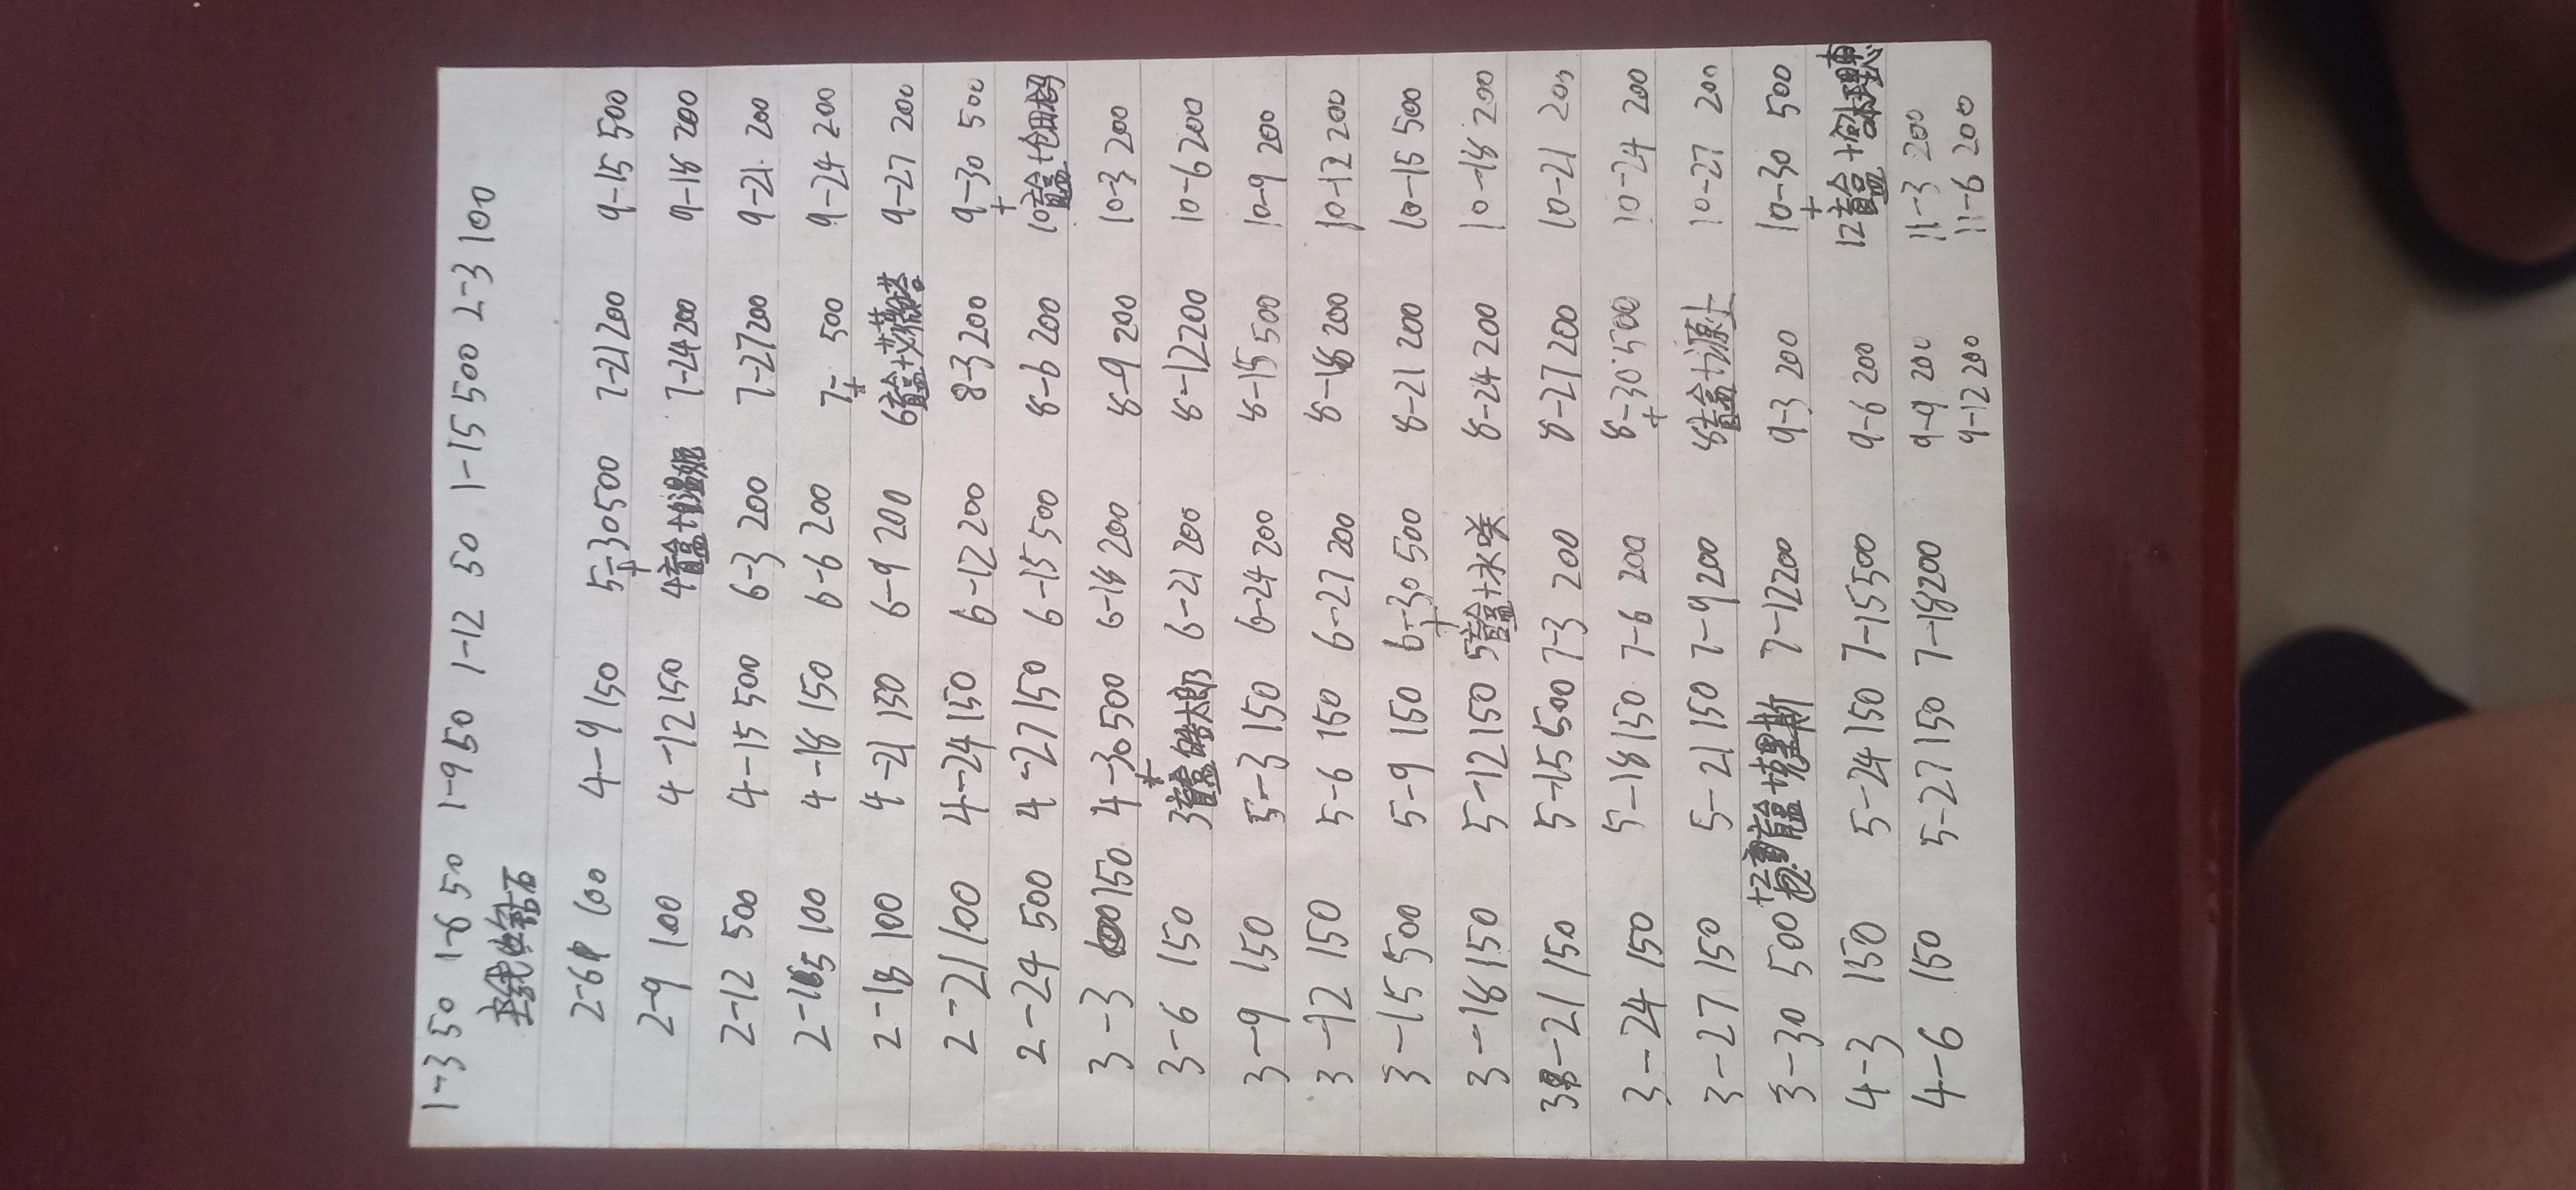 1-3 50 1-6 50 1-9 50 1-12 50 1-15 500 2-3 100
主线 钻石
2-6 100 4-9 150 5-30 500 7-21 200 9-15 500
2-9 100 4-12 150 4盲盒+ 7-24 200 9-18 200
2-12 500 4-15 500 6-3 200 7-27 200 9-21 200
2-15 100 4-18 150 6-6 200 7- 500 9-24 200
2-18 100 4-21 150 6-9 200 6盲盒+艾薇塔 9-27 200
2-21 100 4-24 150 6-12 200 8-3 200 9-30 500
2-24 500 4-27 150 6-15 500 8-6 200 + 10盲盒+
3-3 150 4-30 500 6-18 200 8-9 200 10-3 200
3-6 150 + 3盲盒 皓太郎 6-21 200 8-12 200 10-6 200
3-9 150 5-3 150 6-24 200 8-15 500 10-9 200
3-12 150 5-6 150 6-27 200 8-18 200 10-12 200
3-15 500 5-9 150 6-30 500 8-21 200 10-15 500
3-18 150 5-12 150 + 5盲盒+水咲 8-24 200 10-18 200
3-21 150 5-15 500 7-3 200 8-27 200 10-21 200
3-24 150 5-18 150 7-6 200 8-30 500 10-24 200
3-27 150 5-21 150 7-9 200 + 8盲盒+源十 10-27 200
3-30 500 +2盲盒+塔里斯 7-12 200 9-3 200 10-30 500
4-3 150 5-24 150 7-15 500 9-6 200 + 12盲盒+
4-6 150 5-27 150 7-18 200 9-9 200 11-3 200
9-12 200 11-6 200